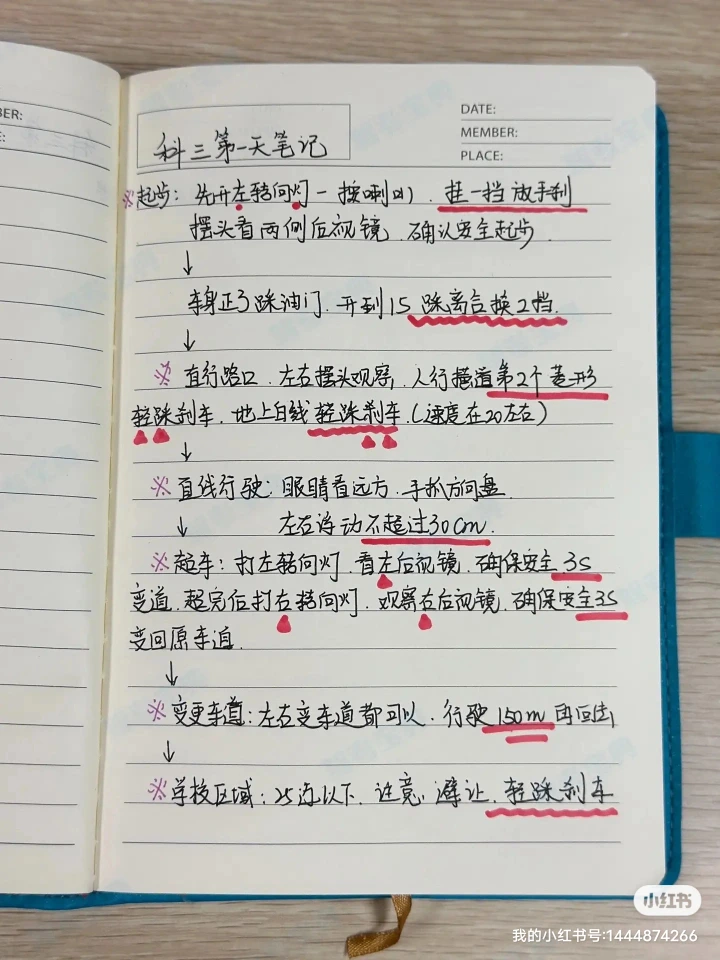 BER:
E:
DATE:
MEMBER:
PLACE:
科三第一天笔记
※起步：先开左转向灯－按喇叭．挂一挡放手刹
摆头看两侧后视镜．确认安全起步．
↓
车身正了踩油门．开到15 踩离合换2挡．
↓
※ 直行路口．左右摆头观察，人行横道第2个菱形
轻踩刹车．地上白线轻踩刹车．(速度在20左右)
↓
※ 直线行驶：眼睛看远方．手抓方向盘
↓ 左右浮动不超过30cm．
※超车：打左转向灯．看左后视镜．确保安全3S
变道．超完后打右转向灯．观察右后视镜．确保安全3S
变回原车道．
↓
※变更车道：左右变车道都可以．行驶150m再回去，
↓
※学校区域：25迈以下．注意．避让．轻踩刹车
小红书
我的小红书号:1444874266